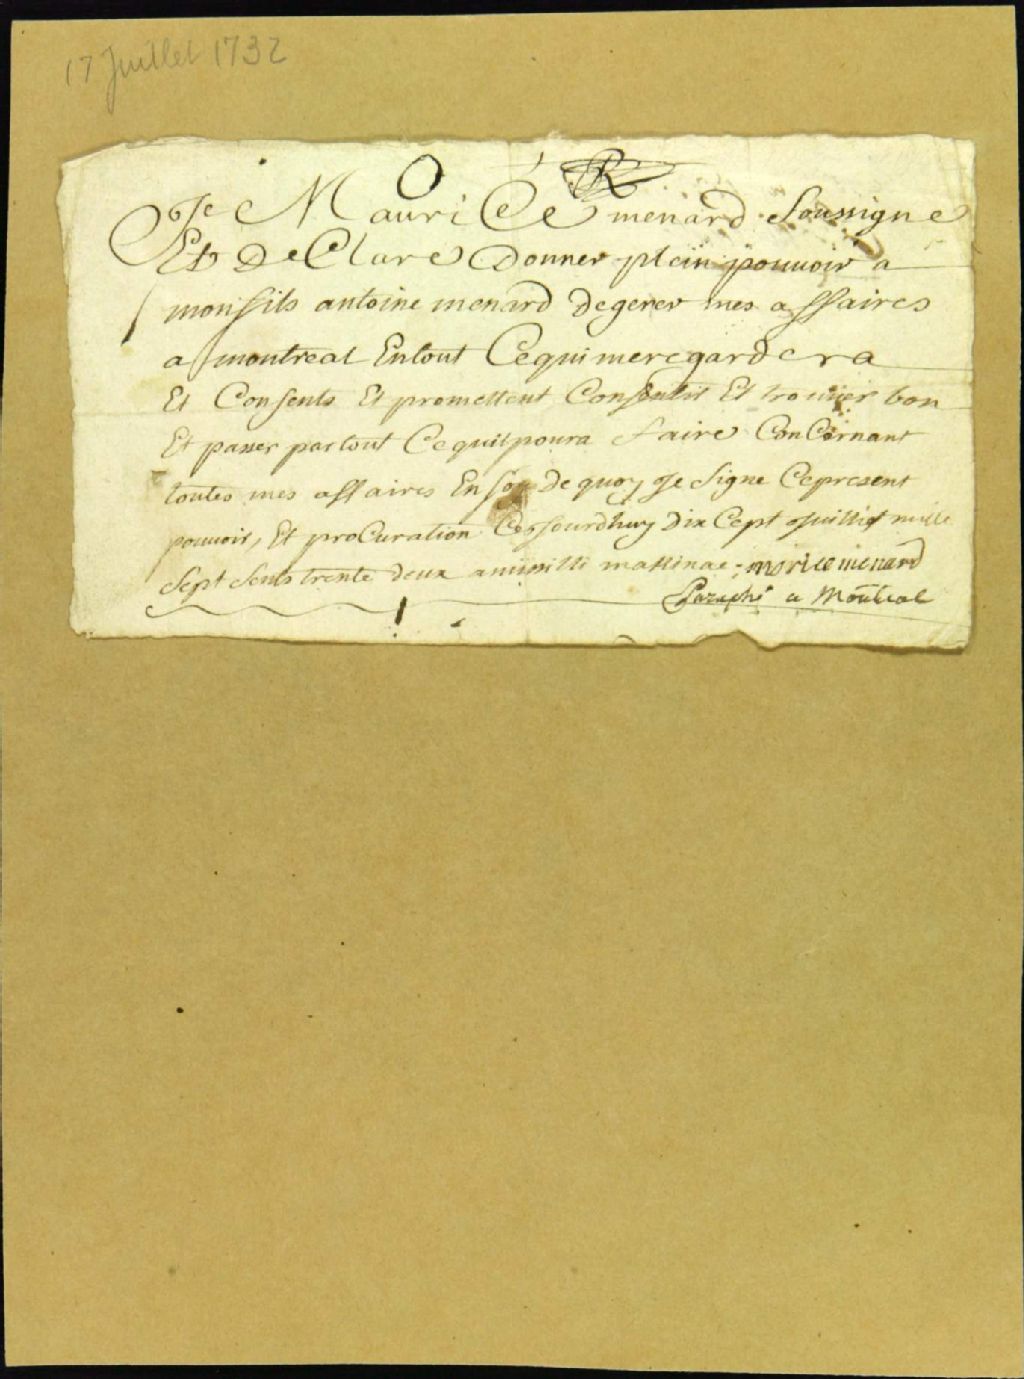 17 Juillet 1732
R
Je Maurice menard Soussigne
Et DeClare Donner plein pouuoir a
monfils antoine menard degerer mes affaires
a montreal Entout Cequimeregardera
Et Consents Et promettent Consentit Et trouuer bon
Et passer partout Cequilpoura faire ConCernant
toutes mes affaires En foy De quoy Je Signe Cepresent
pouuoir, Et proCuration Cejourdhuy Dix Cept Juillet mille
Sept Sents trente deux a missilli makinac; moricemenard
Paraphé a Montreal